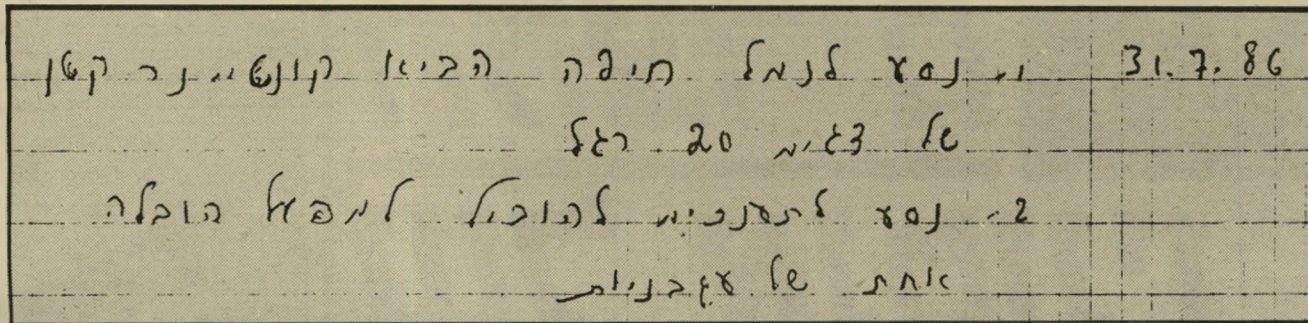 31.7.86 1. נסע לנמל חיפה הביא קונטיינר קטן
של דגים 20 רגל
2. נסע לתענכים להוביל למפעל הובלה
אחת של עגבניות